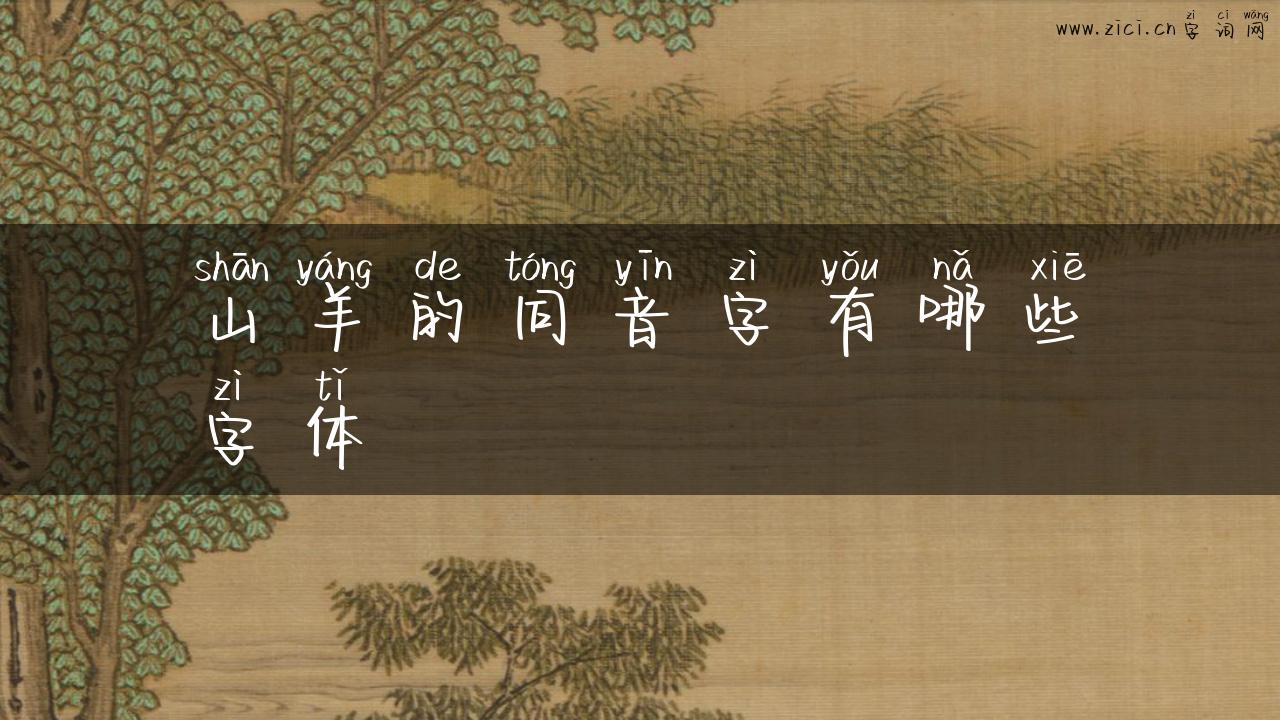 zì cí wǎng
www.zici.cn字词网
shān yáng de tóng yīn zì yǒu nǎ xiē
山羊的同音字有哪些
zì tǐ
字体